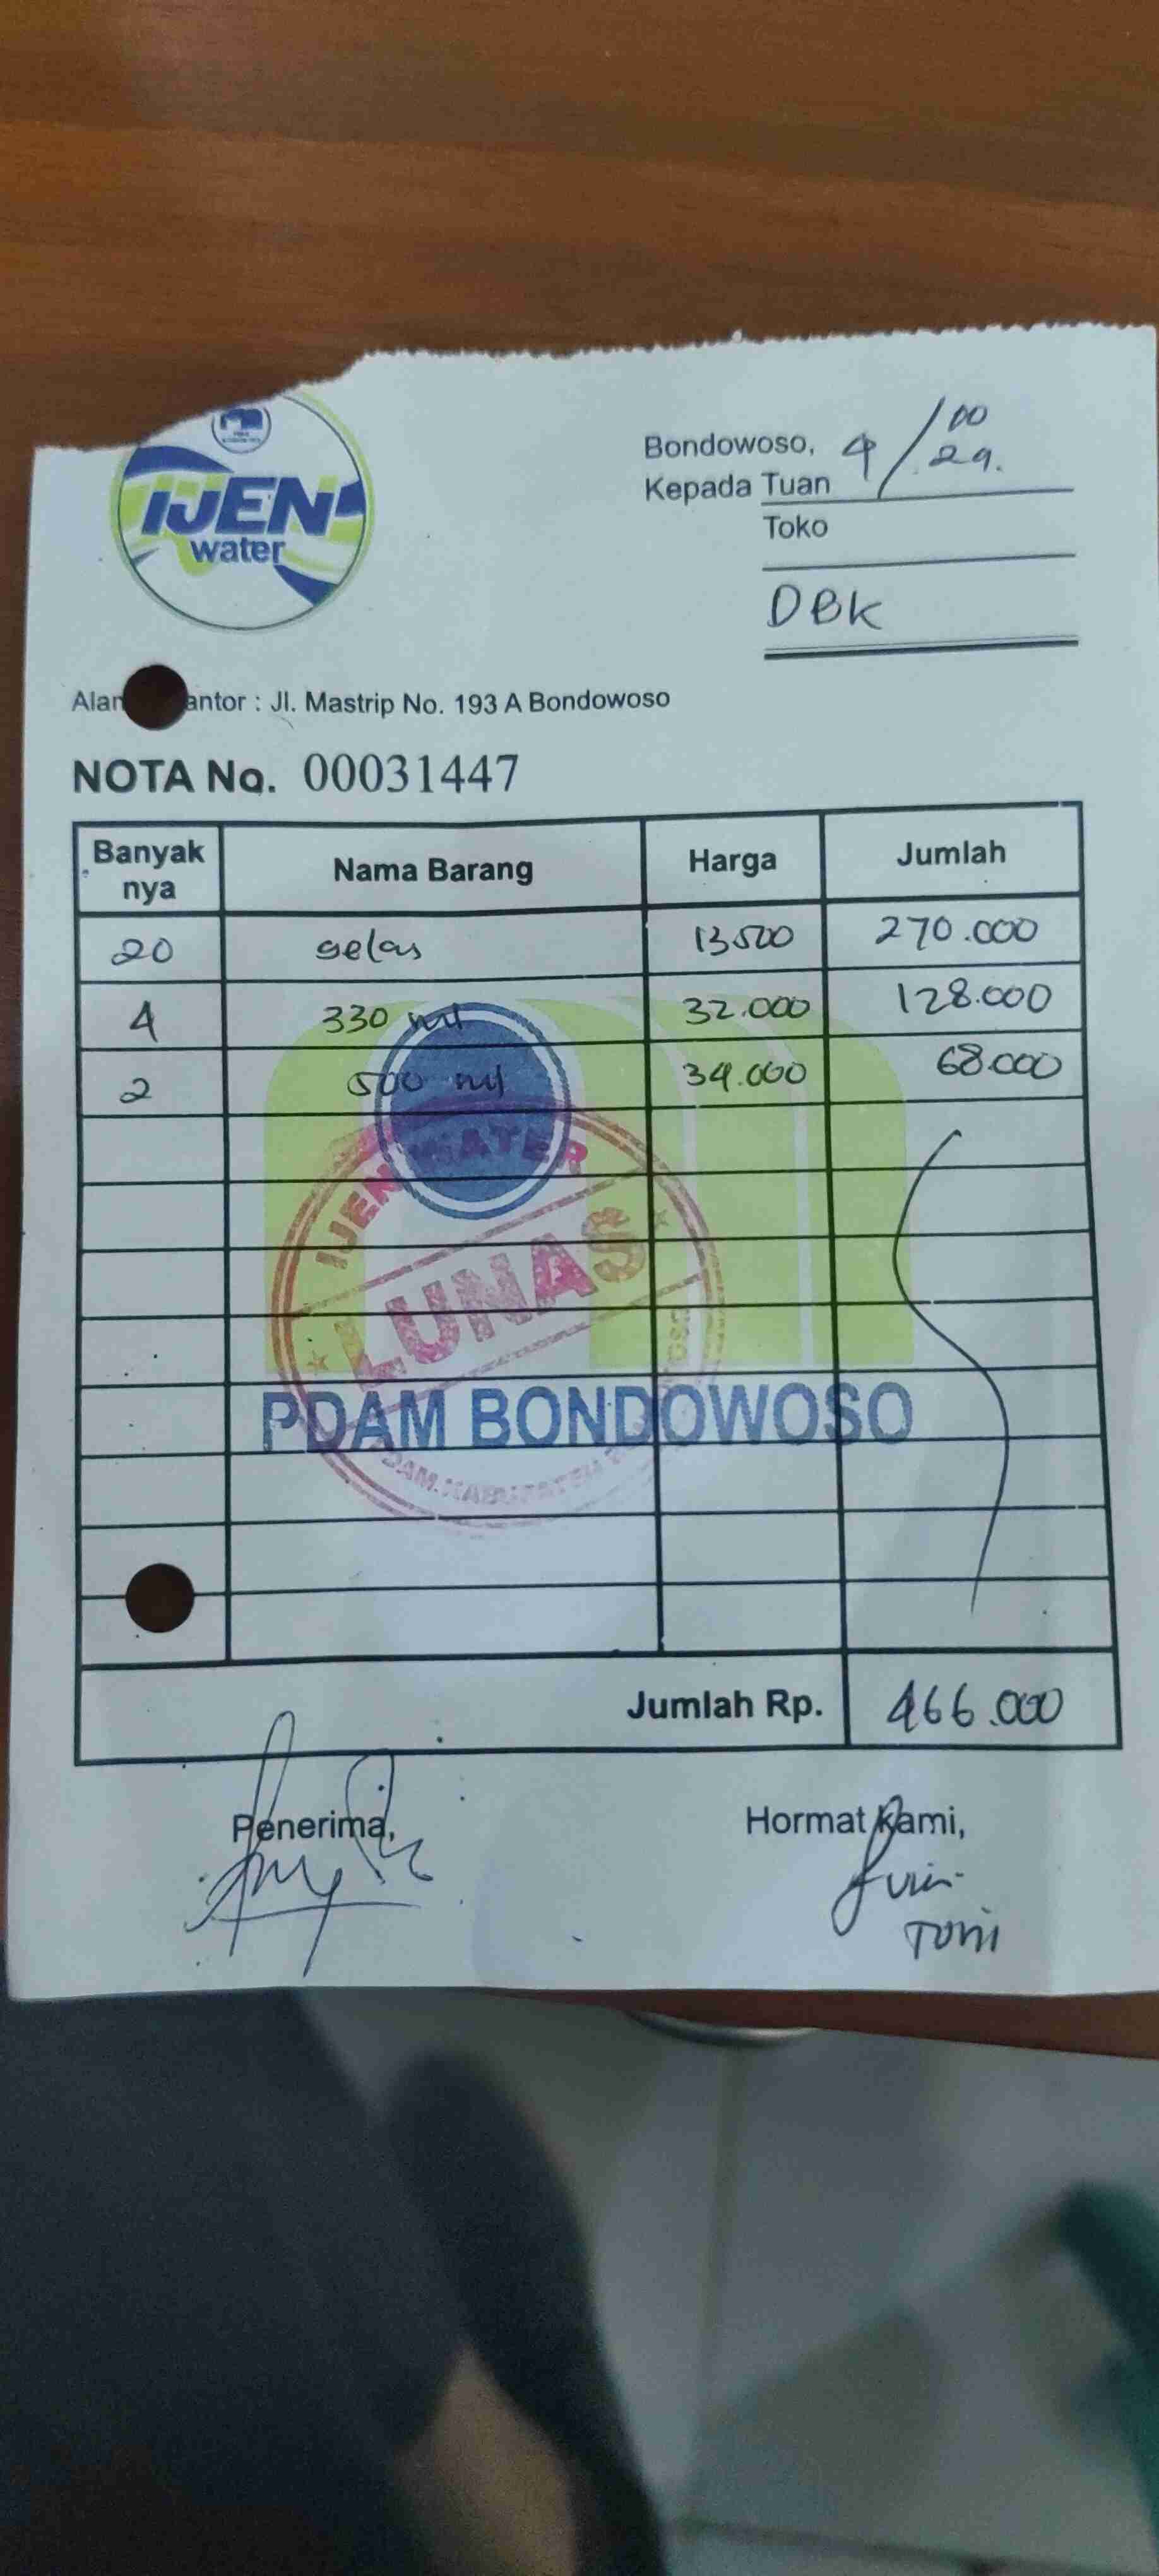 IJEN
water
Bondowoso, 4/
Kepada Tuan
Toko
DBK
Alan antor : Jl. Mastrip No. 193 A Bondowoso
NOTA No. 00031447
Banyak nya Nama Barang Harga Jumlah
20 gelas 13500 270.000
4 330 ml 32.000 128.000
2 500 ml 34.000 68.000
IJEN WATER
LUNAS
PDAM BONDOWOSO
Jumlah Rp. 466.000
Penerima, Hormat Kami,
Toni